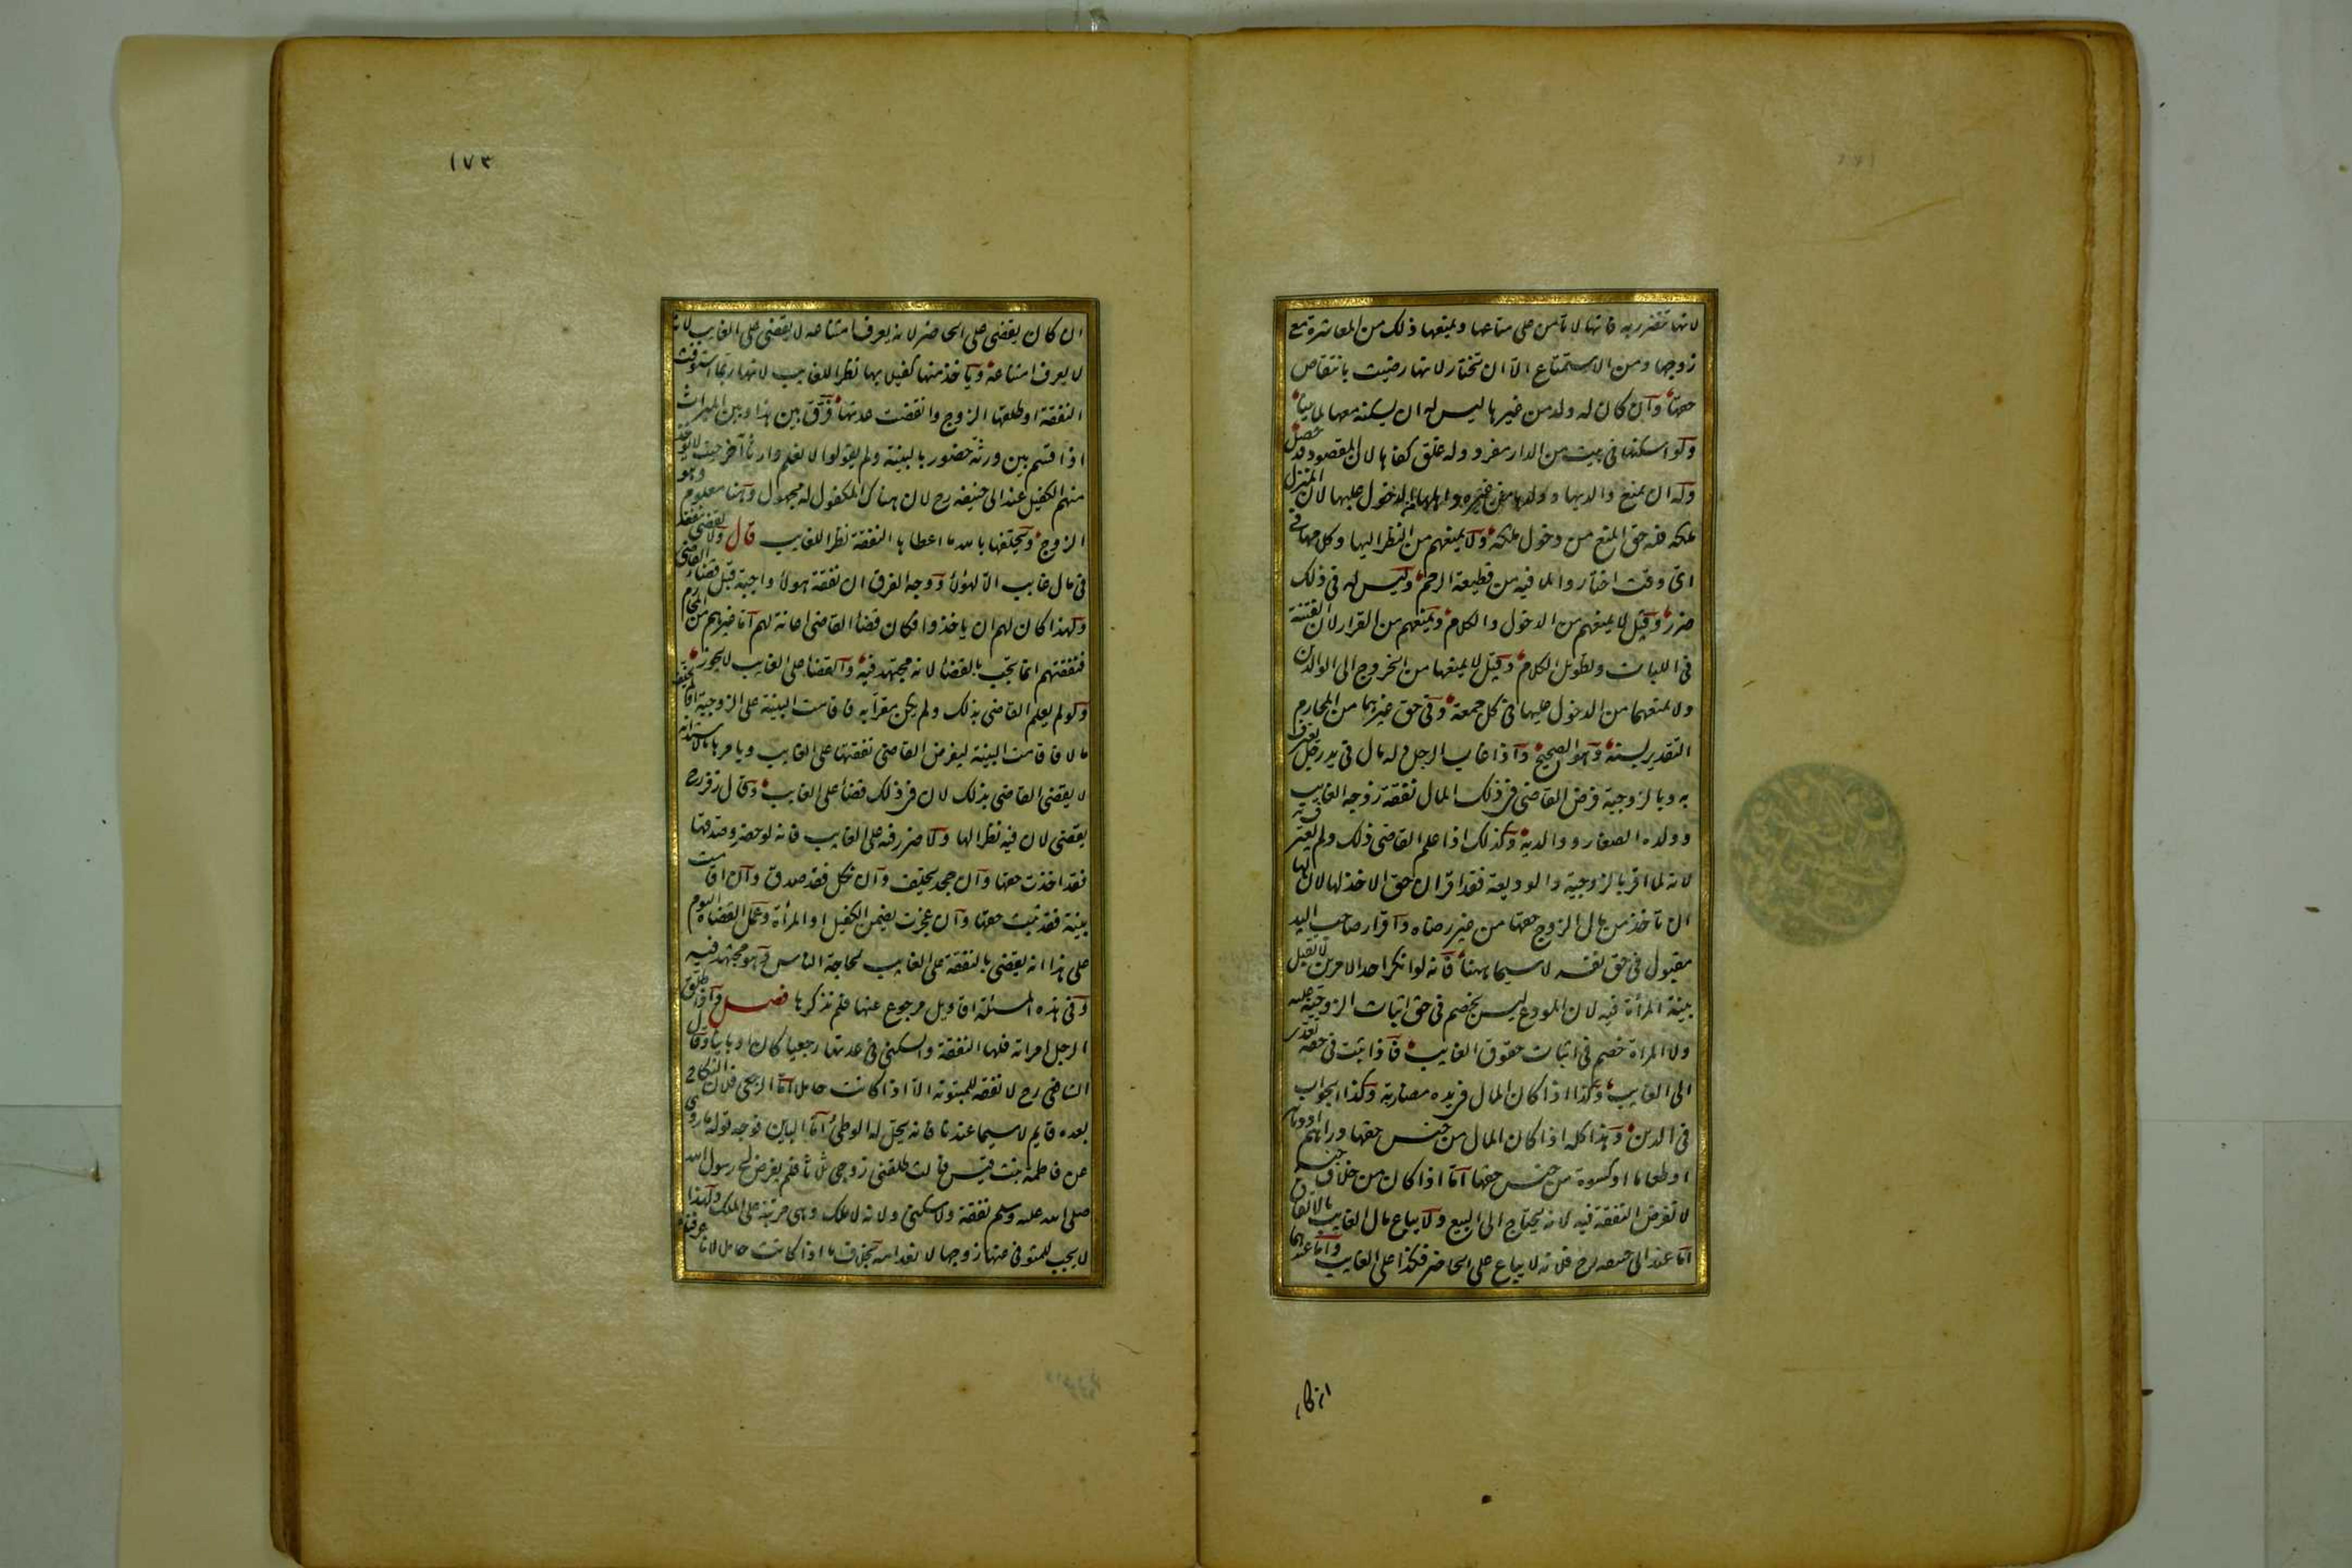 لانها تتضرر به فانها لا تأمن على متاعها ويمنعها ذلك من المعاشرة مع
زوجها ومن الاستمتاع الا ان تختار لانها رضيت بانتقاص
حقها وان كان له ولد من غيرها ليس له ان يسكنه معها لما بينا
ولو اسكنها فى بيت من الدار مفرد وله غلق كفاها لان المقصود قد حصل
وله ان يمنع والديها وولدها من غيره واهلها الدخول عليها لان المنزل
ملكه فله حق المنع من دخول ملكه ولا يمنعهم من النظر اليها وكلامها فى
اى وقت اختاروا لما فيه من قطيعة الرحم وليس له فى ذلك
ضرر وقيل لا يمنعهم من الدخول والكلام ويمنعهم من القرار لان الفتنة
فى اللباث وتطويل الكلام وقيل لا يمنعها من الخروج الى الوالدين
ولا يمنعهما من الدخول عليها فى كل جمعة وفى حق غيرهما من المحارم
التقدير بسنة وهو الصحيح واذا غاب الرجل وله مال فى يد رجل يعترف
به وبالزوجية فرض القاضى فى ذلك المال نفقة زوجة الغايب
وولده الصغار ووالديه وكذلك اذا علم القاضى ذلك ولم يعترف به
لانه لما اقر بالزوجية والوديعة فقد اقر ان حق الاخذ لها لان لها
ان تأخذ من مال الزوج حقها من غير رضاه واقرار صاحب اليد
مقبول فى حق نفسه لا سيما ههنا فانه لو انكر احد الامرين لا تقبل
بينة المرأة فيه لان المودع ليس بخصم فى حق اثبات الزوجية عليه
ولا المرأة خصم فى اثبات حقوق الغايب فاذا ثبت فى حقه تعدى
الى الغايب وكذا اذا كان المال فى يده مضاربة وكذا الجواب
فى الدين وهذا كله اذا كان المال من جنس حقها دراهم او دنانير
او طعاما او كسوة من جنس حقها اما اذا كان من خلاف جنسه
لا تفرض النفقة فيه لانه يحتاج الى البيع ولا يباع مال الغايب بالاتفاق
اما عند ابى حنيفة رح فلانه لا يباع على الحاضر فكذا على الغايب واما عندهما
ان كان
١٧٣
ان كان يقضى على الحاضر لانه يعرف امتناعه لا يقضى على الغايب لانه
لا يعرف امتناعه ويأخذ منها كفيلا بها نظرا للغايب لانها ربما استوفت
النفقة او طلقها الزوج وانقضت عدتها فرق بين هذا وبين الميراث
اذا قسم بين ورثة حضور بالبينة ولم يقولوا لا نعلم وارثا آخر حيث لا يؤخذ
منهم الكفيل عند ابى حنيفة رح لان هناك المكفول له مجهول وهنا معلوم وهو
الزوج ويحلفها بالله ما اعطاها النفقة نظرا للغايب قال ولا يقضى بنفقة
فى مال غايب الا لهؤلاء ووجه الفرق ان نفقة هولاء واجبة قبل قضاء القاضى
ولهذا كان لهم ان ياخذوا فكان قضاء القاضى اعانة لهم اما غيرهم من المحارم
فنفقتهم انما تجب بالقضاء لانه مجتهد فيه والقضاء على الغايب لا يجوز
ولو لم يعلم القاضى بذلك ولم يكن مقرا به فاقامت البينة على الزوجية او لم يخلف
مالا فاقامت البينة ليفرض القاضى نفقتها على الغايب ويامرها بالاستدانة
لا يقضى القاضى بذلك لان فى ذلك قضاء على الغايب وقال زفر رح
يقضى لان فيه نظرا لها ولا ضرر فيه على الغايب فانه لو حضر وصدقها
فقد اخذت حقها وان جحد يحلف وان نكل فقد صدق وان اقامت
بينة فقد ثبت حقها وان عجزت يضمن الكفيل او المرأة وعمل القضاة اليوم
على هذا انه يقضى بالنفقة على الغايب لحاجة الناس وهو مجتهد فيه
وفى هذه المسئلة اقاويل مرجوع عنها فلم نذكرها فصل واذا طلق
الرجل امراته فلها النفقة والسكنى فى عدتها رجعيا كان او باينا وقال
الشافعى رح لا نفقة للمبتوتة الا اذا كانت حاملا اما الرجعى فلان النكاح
بعده قايم لا سيما عندنا فانه يحل له الوطئ اما الباين فوجه قوله ما روى
عن فاطمة بنت قيس قالت طلقنى زوجى ثلثا فلم يفرض لى رسول الله
صلى الله عليه وسلم نفقة ولا سكنى ولانه لا ملك وهى مرتبة على الملك ولهذا
لا تجب للمتوفى عنها زوجها لانعدامه بخلاف ما اذا كانت حاملا لانا عرفناه